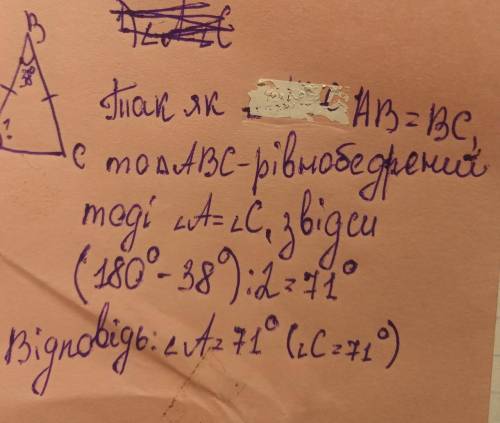 B
38°
?
C
Так як AB = BC,
то △ABC - рівнобедрений
тоді ∠A = ∠C, звідси
(180° - 38°) : 2 = 71°
Відповідь: ∠A = 71° (∠C = 71°)